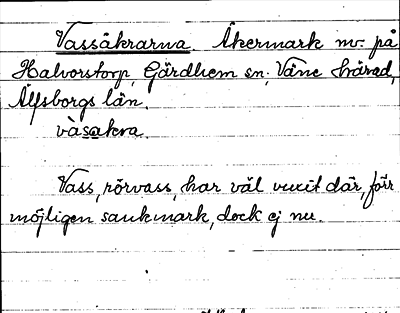 Vassåkrarna. Åkermark nv. på
Halvorstorp, Gärdhem sn, Väne härad,
Älfsborgs län.
vàsakra.
Vass, rörvass, har väl vuxit där, förr
möjligen sankmark, dock ej nu.